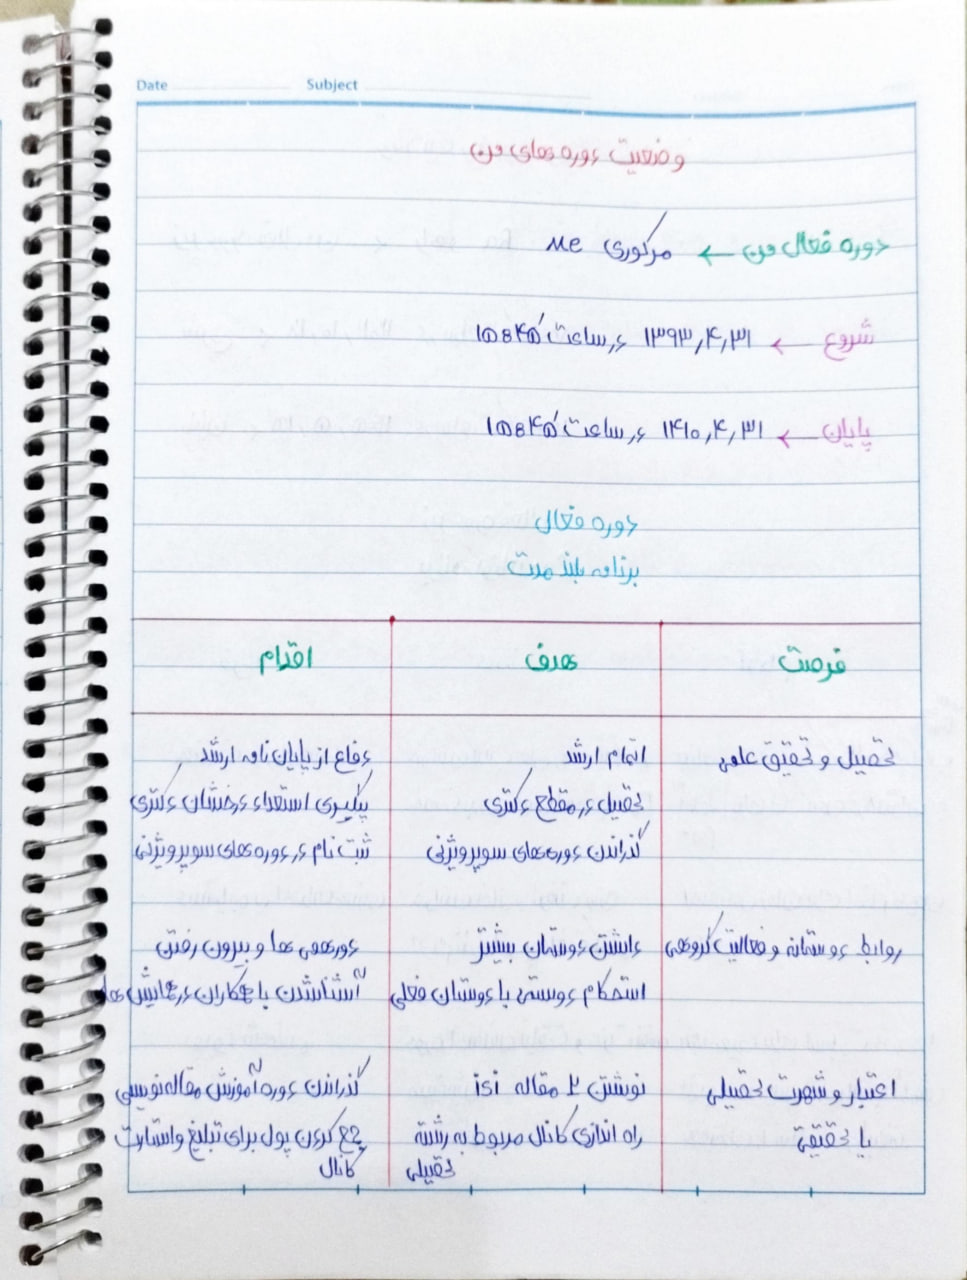 Date Subject
وضعیت دوره های من
دوره فعال من ← مرکوری Me
شروع ← ۱۳۹۳,۴,۳۱ در ساعت ۱۵:۴۵
پایان ← ۱۴۱۰,۴,۳۱ در ساعت ۱۵:۴۵
دوره فعال
برنامه بلند مدت
فرصت هدف اقدام
تحصیل و تحقیق علمی اتمام ارشد دفاع از پایان نامه ارشد
تحصیل در مقطع دکتری پیگیری استعداد درخشان دکتری
گذراندن دوره های سوپرویژنی ثبت نام در دوره های سوپرویژنی
روابط دوستانه و فعالیت گروهی داشتن دوستان بیشتر دورهمی ها و بیرون رفتن
استحکام دوستی با دوستان فعلی آشنا شدن با همکاران در همایش ها
اعتبار و شهرت تحصیلی نوشتن ۲ مقاله isi گذراندن دوره آموزش مقاله نویسی
یا تحقیقی راه اندازی کانال مربوط به رشته جمع کردن پول برای تبلیغ و استارت
تحصیلی کانال